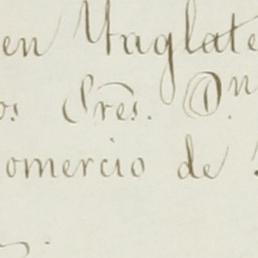 en Ynglate
os Sres. Dn.
omercio de